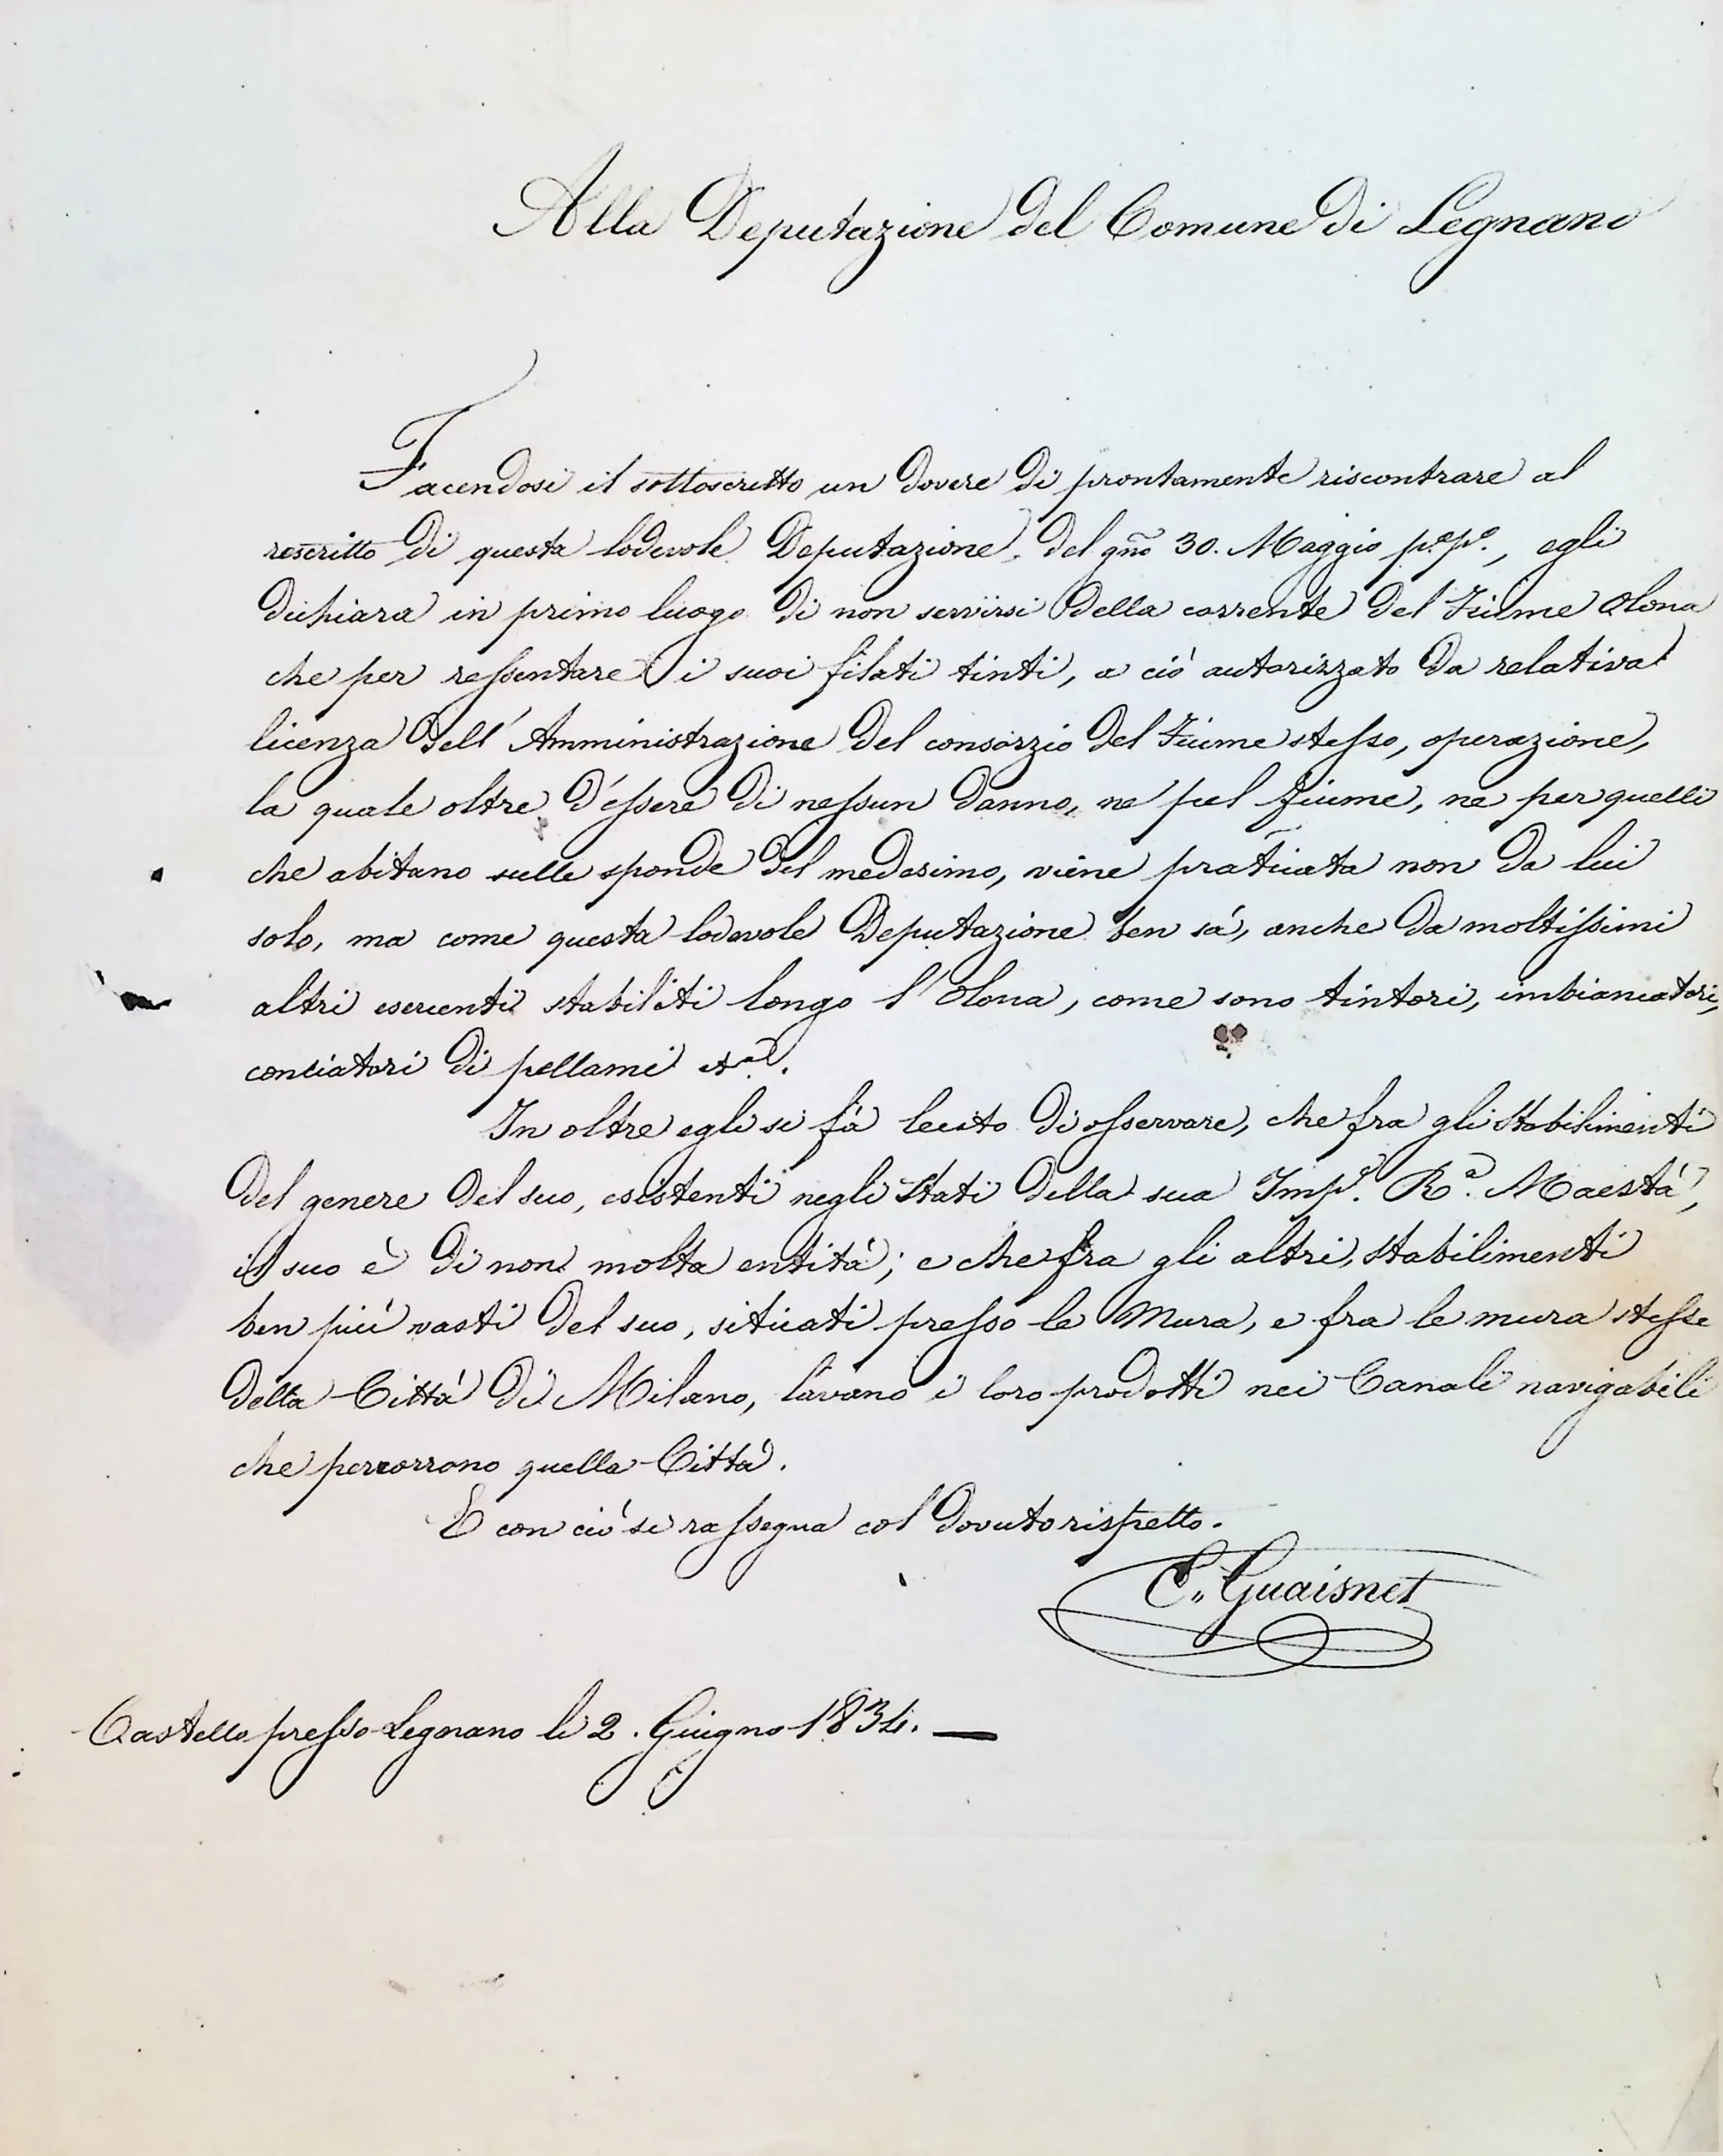 Alla Deputazione del Comune di Legnano
Facendosi il sottoscritto un dovere di prontamente riscontrare al
rescritto di questa lodevole Deputazione, del gño 30. Maggio p.º p.º, egli
dichiara in primo luogo di non servirsi della corrente del Fiume Olona
che per ressentare i suoi filati tinti, a ciò autorizzato da relativa
licenza dell'Amministrazione del consorzio del Fiume stesso, operazione,
la quale oltre d'essere di nessun danno, ne pel fiume, ne per quelli
che abitano sulle sponde del medesimo, viene praticata non da lui
solo, ma come questa lodevole Deputazione ben sá, anche da moltissimi
altri esercenti stabiliti longo l'Olona, come sono tintori, imbiancatori,
conciatori di pellami etª.
In oltre egli si fà lecito di osservare, che fra gli Stabilimenti
del genere del suo, esistenti negli Stati della sua Imp.ª R.ª Maestá,
il suo è di non molta entitá; e che fra gli altri, Stabilimenti
ben piú vasti del suo, situati presso le Mura, e fra le mura stesse
della Cittá di Milano, lavano i loro prodotti nei Canali navigabili
che percorrono quella Cittá.
E con ció si rassegna col dovuto rispetto.
C. Guaisnet
Castello presso Legnano li 2. Giugno 1834.